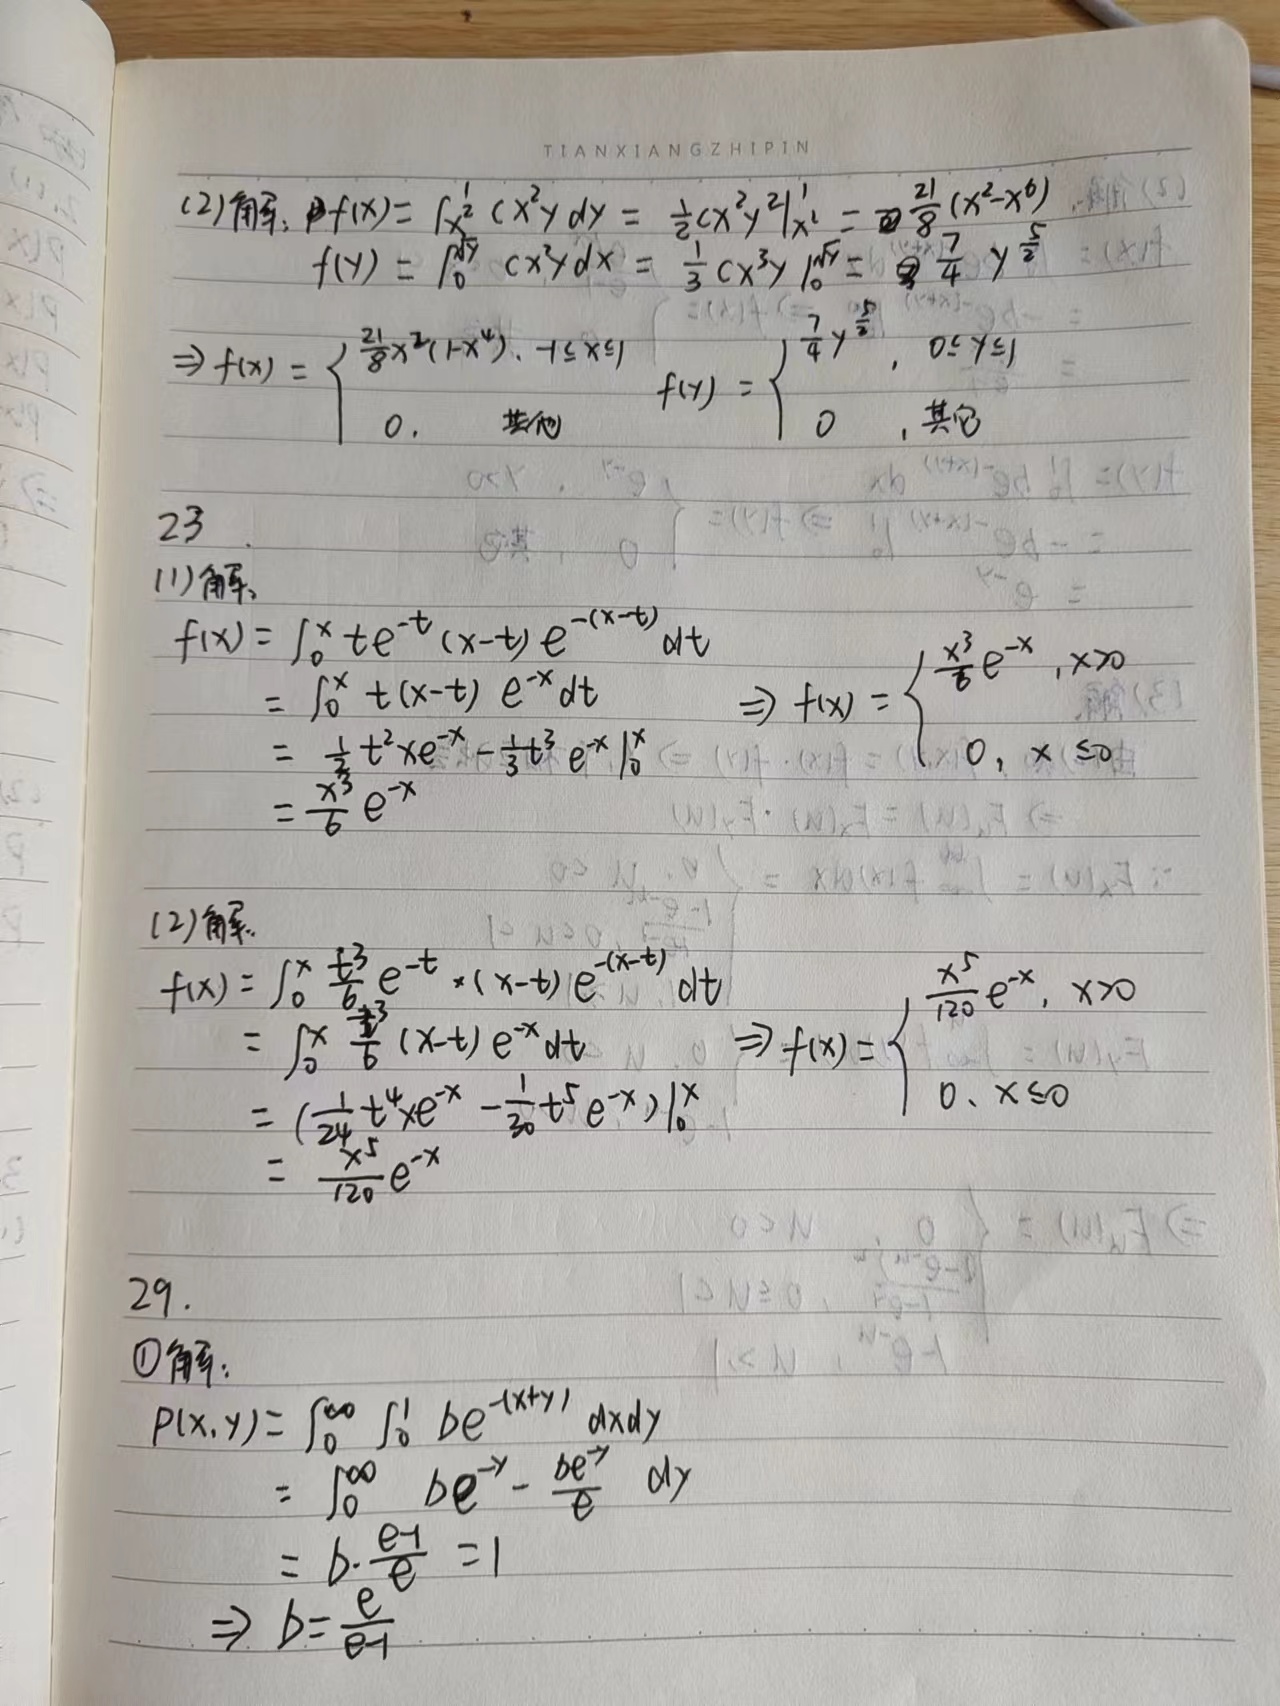 TIANXIANGZHIPIN
(2)解: f(x) = ∫_{x²}^{1} cx²y dy = ½cx²y²|_{x²}^{1} = 21/8 (x²-x⁶)
f(y) = ∫_0^{√y} cx²y dx = 1/3 cx³y|_0^{√y} = 7/4 y^{5/2}
⇒ f(x) = { 21/8 x²(1-x⁴), -1≤x≤1 f(y) = { 7/4 y^{5/2}, 0≤y≤1
0, 其他 0, 其它
23
(1)解:
f(x) = ∫_0^x te^{-t}(x-t)e^{-(x-t)}dt
= ∫_0^x t(x-t) e^{-x}dt ⇒ f(x) = { x³/6 e^{-x}, x>0
= ½t²xe^{-x} - 1/3 t³ e^{-x}|_0^x 0, x≤0
= x³/6 e^{-x}
(2)解:
f(x) = ∫_0^x t³/6 e^{-t}·(x-t)e^{-(x-t)}dt
= ∫_0^x t³/6 (x-t) e^{-x}dt ⇒ f(x) = { x⁵/120 e^{-x}, x>0
= (1/24 t⁴xe^{-x} - 1/30 t⁵e^{-x})|_0^x 0, x≤0
= x⁵/120 e^{-x}
29.
①解:
P(x,y) = ∫_0^∞ ∫_0^1 be^{-(x+y)} dxdy
= ∫_0^∞ be^{-y} - be^{-y}/e dy
= b·(e-1)/e = 1
⇒ b = e/(e-1)